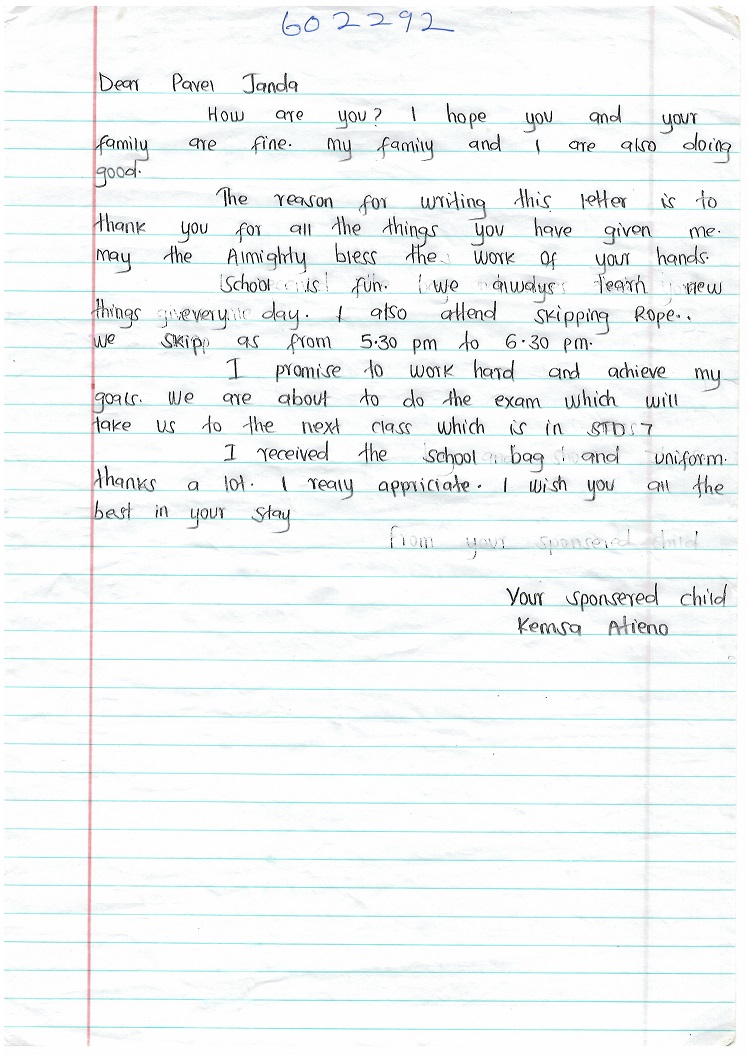 602292
Dear Pavel Janda
How are you? I hope you and your
family are fine. my family and I are also doing
good.
The reason for writing this letter is to
thank you for all the things you have given me.
may the Almighty bless the work of your hands.
School is fun. we always learn new
things every day. I also attend skipping Rope..
we skip as from 5.30 pm to 6.30 pm.
I promise to work hard and achieve my
goals. we are about to do the exam which will
take us to the next class which is in STD:7
I received the school bag and uniform.
thanks a lot. I realy appriciate. I wish you all the
best in your stay
from your sponsered child
Your sponsered child
Kemsa Atieno